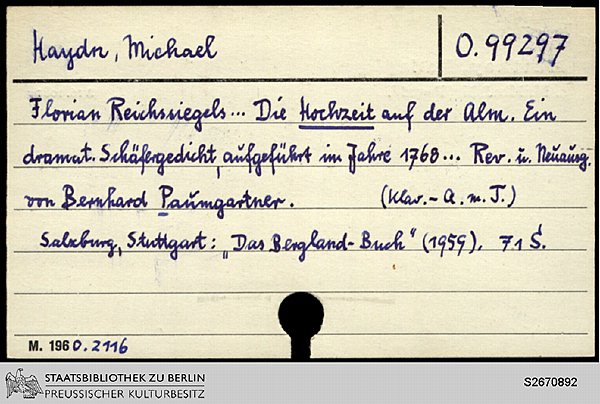 Haydn, Michael
O. 99297
Florian Reichssiegels... Die Hochzeit auf der Alm. Ein
dramat. Schäfergedicht, aufgeführt im Jahre 1768... Rev. u. Neuausg.
von Bernhard Paumgartner. (Klav.-A. m. T.)
Salzburg, Stuttgart: "Das Bergland-Buch" (1959). 71 S.
M. 1960. 2116
STAATSBIBLIOTHEK ZU BERLIN
PREUSSISCHER KULTURBESITZ
S2670892